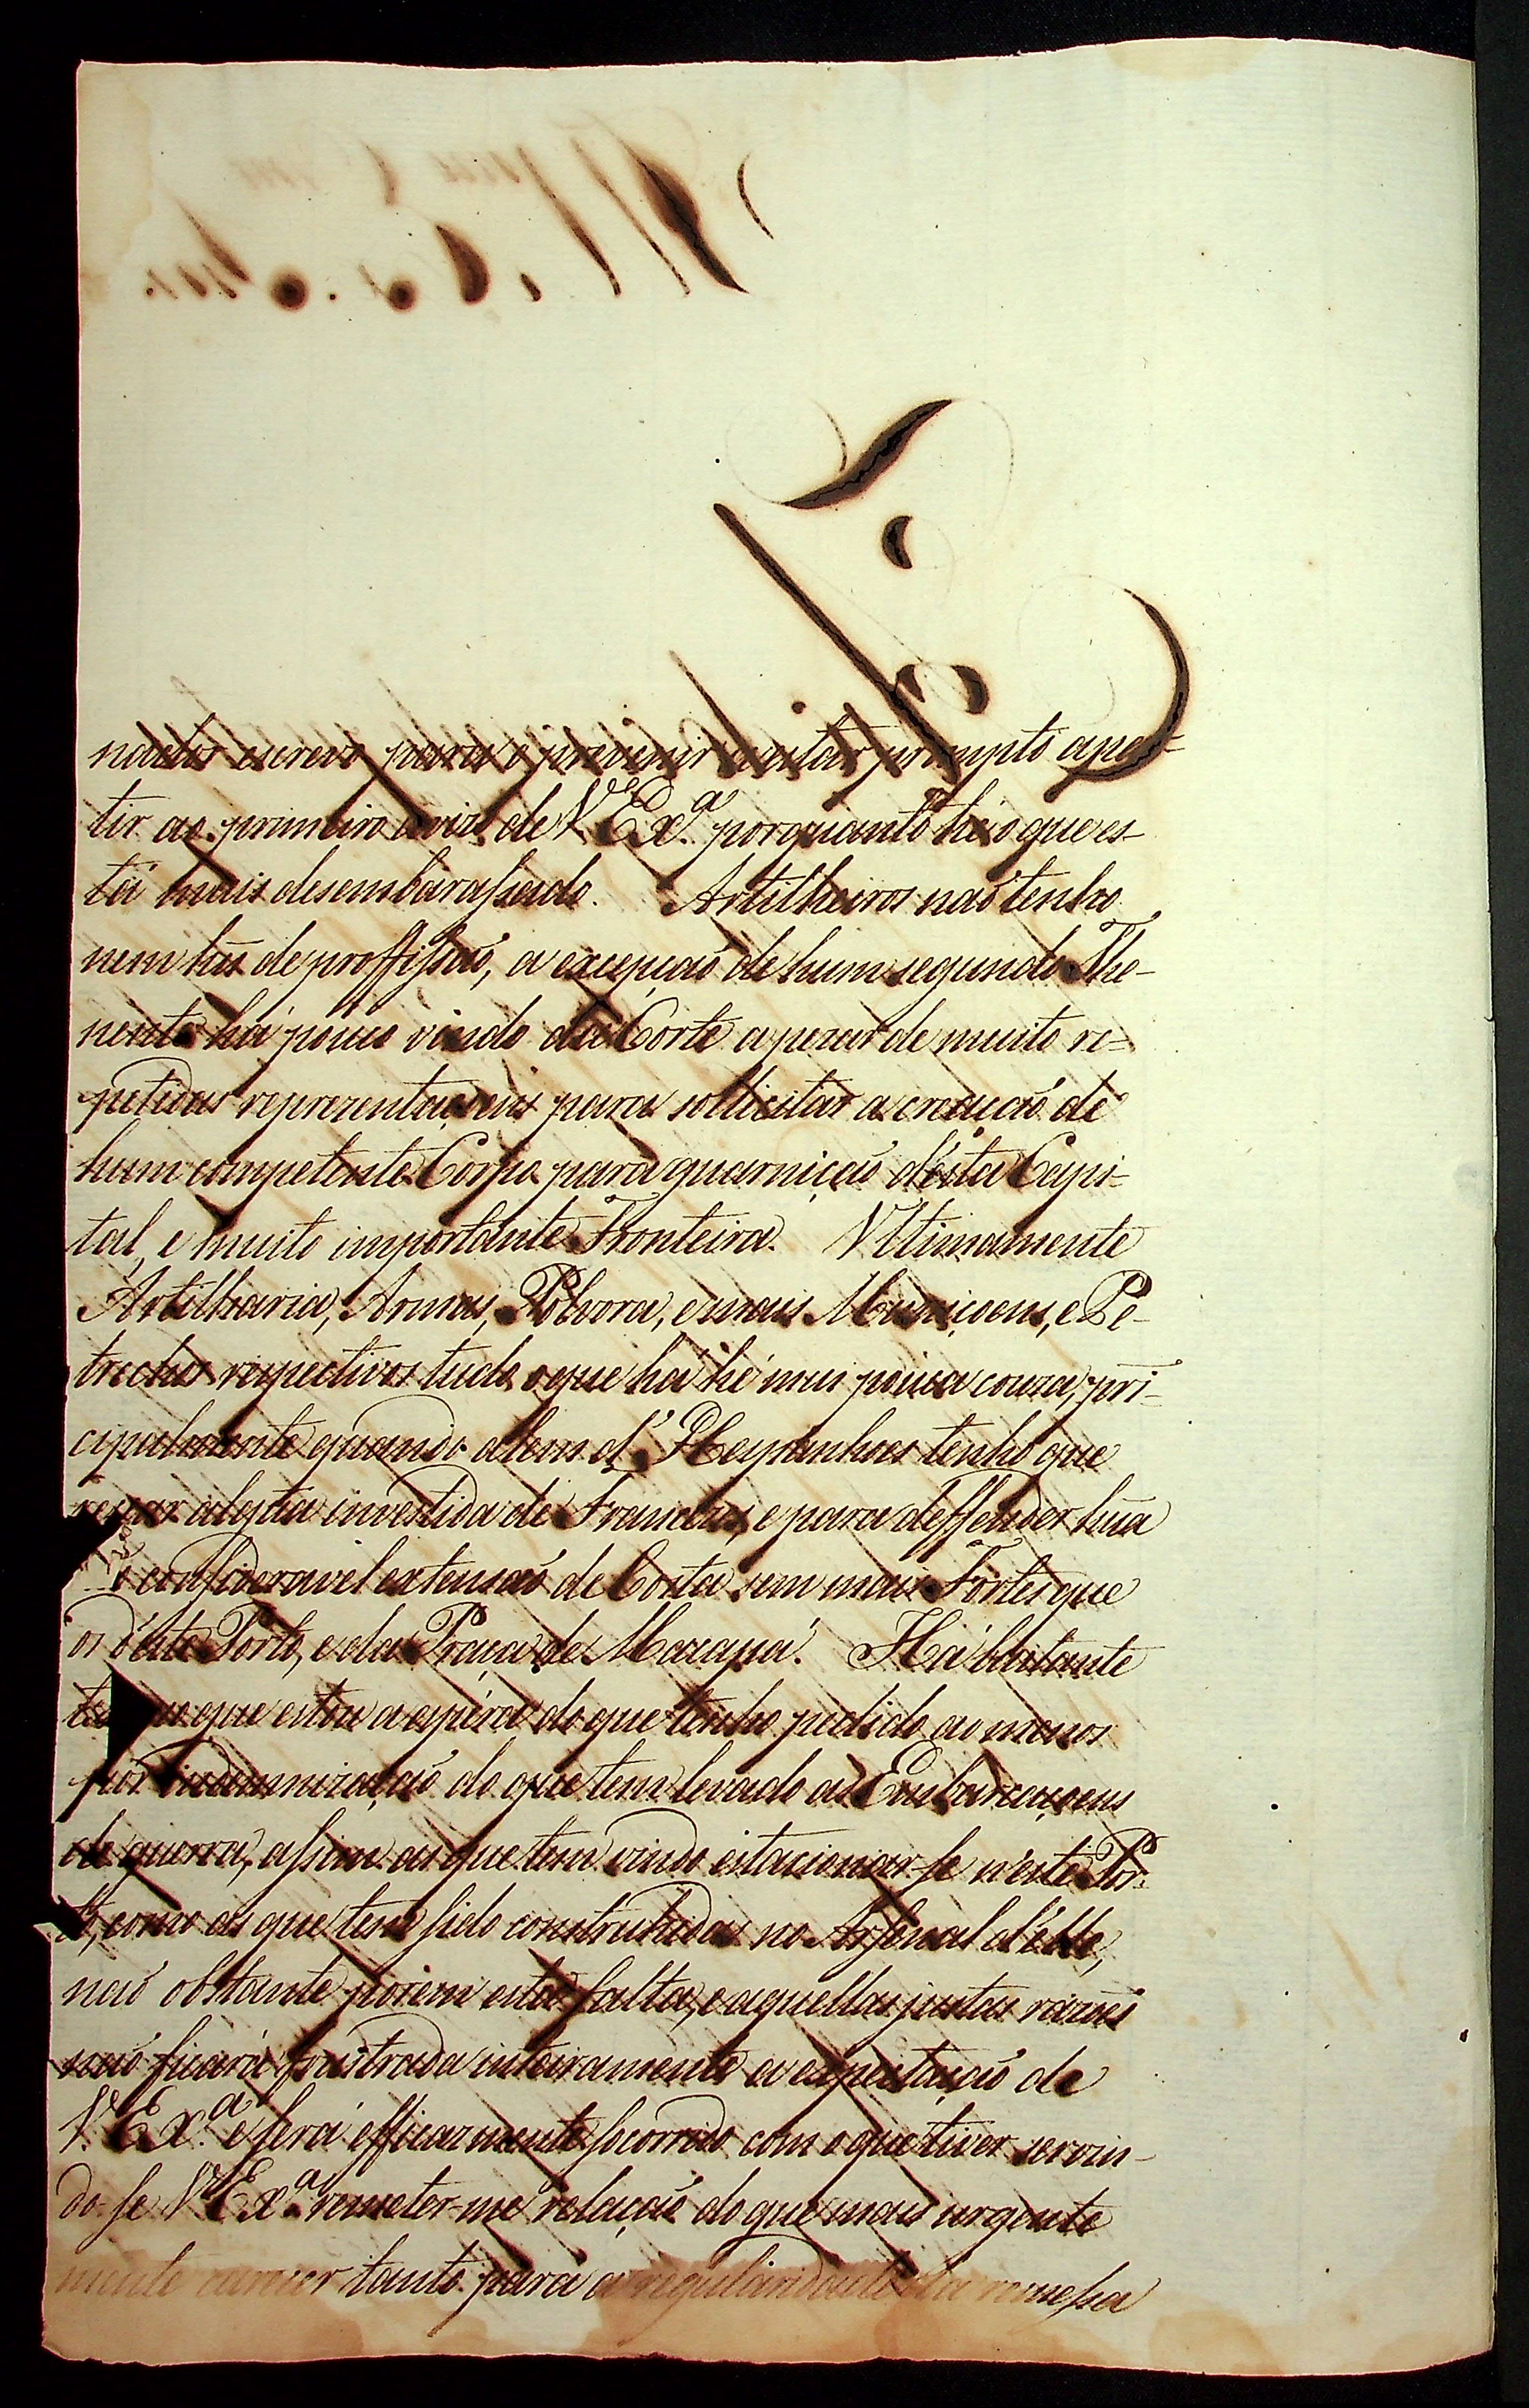 nador escrevo para o prevenir a estar prompto a par=
tir ao primeiro avizo de V. Ex.ª porquanto hé o que es-
tá mais desembarassado. Artilheiros naõ tenho
nem hũ de proffissaõ, a excepçaõ de hum segundo The-
nente há pouco vindo da Corte a pezar de muito re=
petidas reprezentaçoens para sollicitar a creaçaõ de
hum competente Corpo para guarniçaõ d'esta Capi=
tal, e muito importante Fronteira. Vltimamente
Artilharia, Armas, Polvora, e mais Muniçoens, e Pe-
trechos respectivos tudo o que há hé mui pouca couza, pri-
cipalmente quando alem d' Hespanhoes tenho que
recear algũa investida de Francezes, e para deffender hũa
consideravel extensaõ de Costa sem mais Fortes que
os d'este Porto, e da Praça de Macapá. Há bastante
que estou a espera do que tenho pedido ao menos
por indemnizaçaõ do que tem levado as Embarcaçoens
de guerra, assim as que tem vindo estacionar-se n'este Por=
to, como as que tem sido construhidas no Arsenal d'elle,
naõ obstante porem esta falta, e aquellas justas razoẽs
naõ ficará frustrada inteiramente a expectaçaõ de
V. Ex.ª e será efficazmente socorrido com o que tiver servin-
do-se V. Ex.ª remeter-me relaçaõ do que mais urgente
mente carecer tanto para a regularidade da remessa